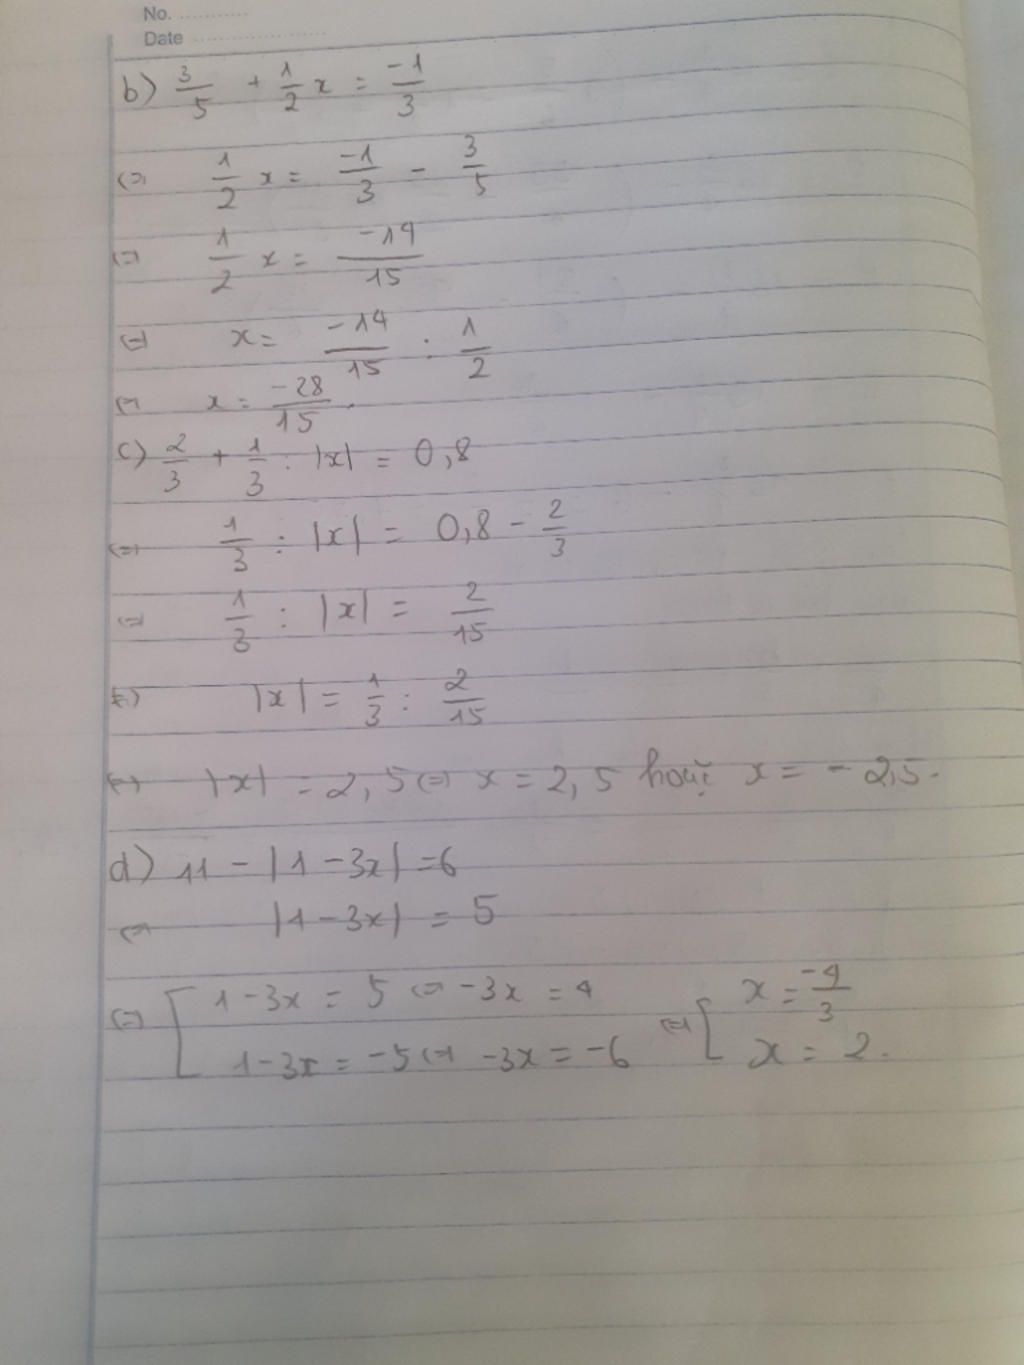 No. ............
Date ......................
b) 3/5 + 1/2 x = -1/3
<=> 1/2 x = -1/3 - 3/5
<=> 1/2 x = -14/15
<=> x = -14/15 : 1/2
<=> x = -28/15.
c) 2/3 + 1/3 : |x| = 0,8
<=> 1/3 : |x| = 0,8 - 2/3
<=> 1/3 : |x| = 2/15
<=> |x| = 1/3 : 2/15
<=> |x| = 2,5 <=> x = 2,5 hoặc x = - 2,5.
d) 11 - |1 - 3x| = 6
<=> |1 - 3x| = 5
<=> [ 1 - 3x = 5 <=> -3x = 4 <=> [ x = -4/3
1 - 3x = -5 <=> -3x = -6 x = 2.